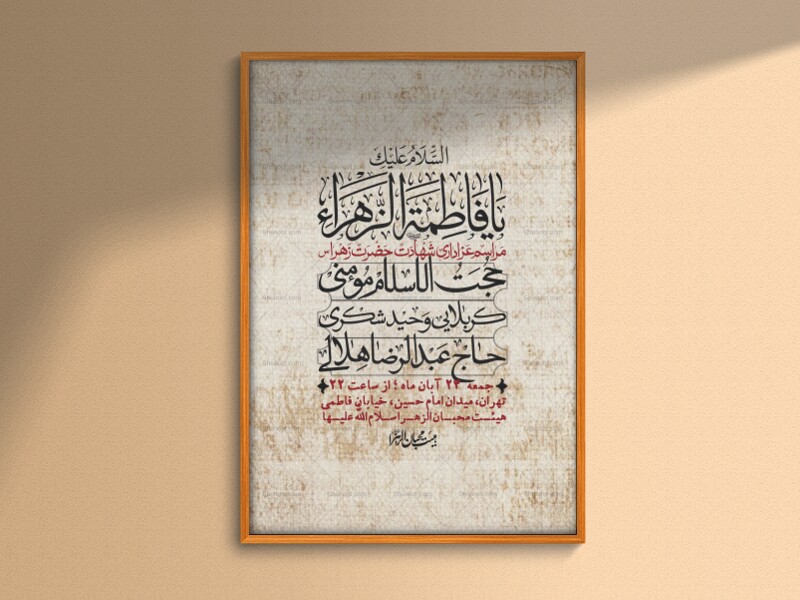 السَّلَامُ عَلَیْكِ
یَا فَاطِمَةَ الزَّهْرَاءِ
مراسم عزاداری شهادت حضرت زهرا س
حجت الاسلام مؤمنی
کربلایی وحید شکری
حاج عبدالرضا هلالی
جمعه ۲۴ آبان ماه ؛ از ساعت ۲۲
تهران، میدان امام حسین، خیابان فاطمی
هیئت محبان الزهرا سلام الله علیها
هیئت محبان الزهرا